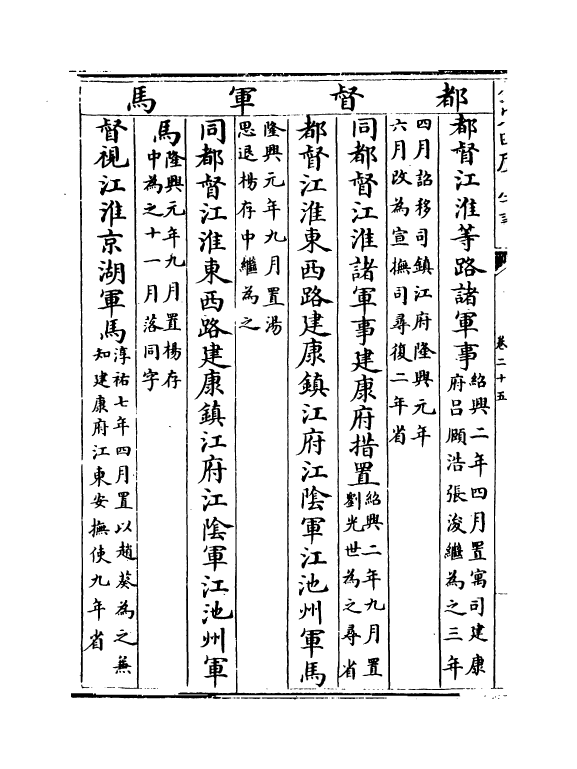 卷二十五
都督軍馬
都督江淮等路諸軍事紹興二年四月置寓司建康
府呂頤浩張浚繼為之三年
四月詔移司鎮江府隆興元年
六月改為宣撫司尋復二年省
同都督江淮諸軍事建康府措置紹興二年九月置
劉光世為之尋省
都督江淮東西路建康鎮江府江陰軍江池州軍馬
隆興元年九月置湯
思退楊存中繼為之
同都督江淮東西路建康鎮江府江陰軍江池州軍
馬隆興元年九月置楊存
中為之十一月落同字
督視江淮京湖軍馬淳祐七年四月置以趙葵為之兼
知建康府江東安撫使九年省